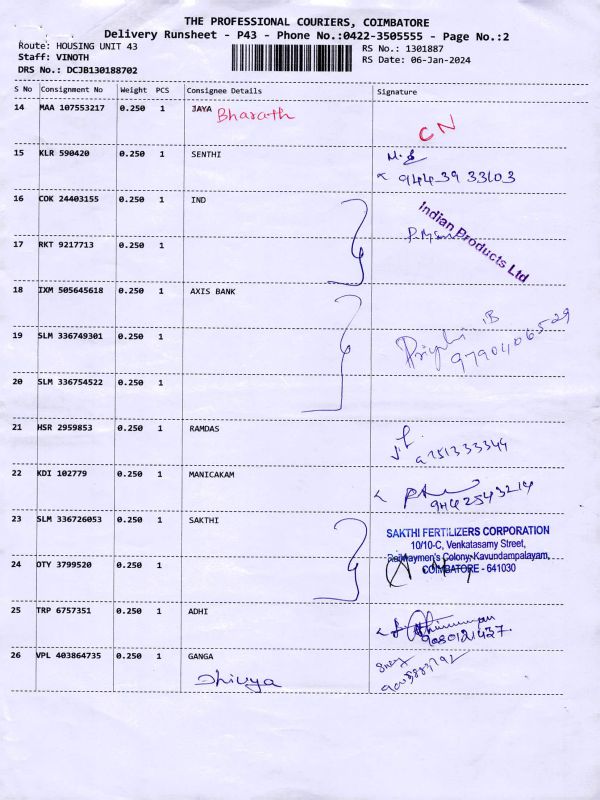 THE PROFESSIONAL COURIERS, COIMBATORE
Delivery Runsheet - P43 - Phone No.:0422-3505555 - Page No.:2
Route: HOUSING UNIT 43
Staff: VINOTH
DRS No.: DCJB130188702
RS No.: 1301887
RS Date: 06-Jan-2024
S No Consignment No Weight PCS Consignee Details Signature
14 MAA 107553217 0.250 1 JAYA Bharath CN
15 KLR 590420 0.250 1 SENTHI
94439 33103
16 COK 24403155 0.250 1 IND
Indian Products Ltd
17 RKT 9217713 0.250 1
18 IXM 505645618 0.250 1 AXIS BANK
19 SLM 336749301 0.250 1
9790406529
20 SLM 336754522 0.250 1
21 HSR 2959853 0.250 1 RAMDAS
22 KDI 102779 0.250 1 MANICAKAM
9442543214
23 SLM 336726053 0.250 1 SAKTHI
SAKTHI FERTILIZERS CORPORATION
10/10-C, Venkatasamy Street,
Railwaymen's Colony, Kavundampalayam,
COIMBATORE - 641030
24 OTY 3799520 0.250 1
25 TRP 6757351 0.250 1 ADHI
9080121437
26 VPL 403864735 0.250 1 GANGA
Dhivya